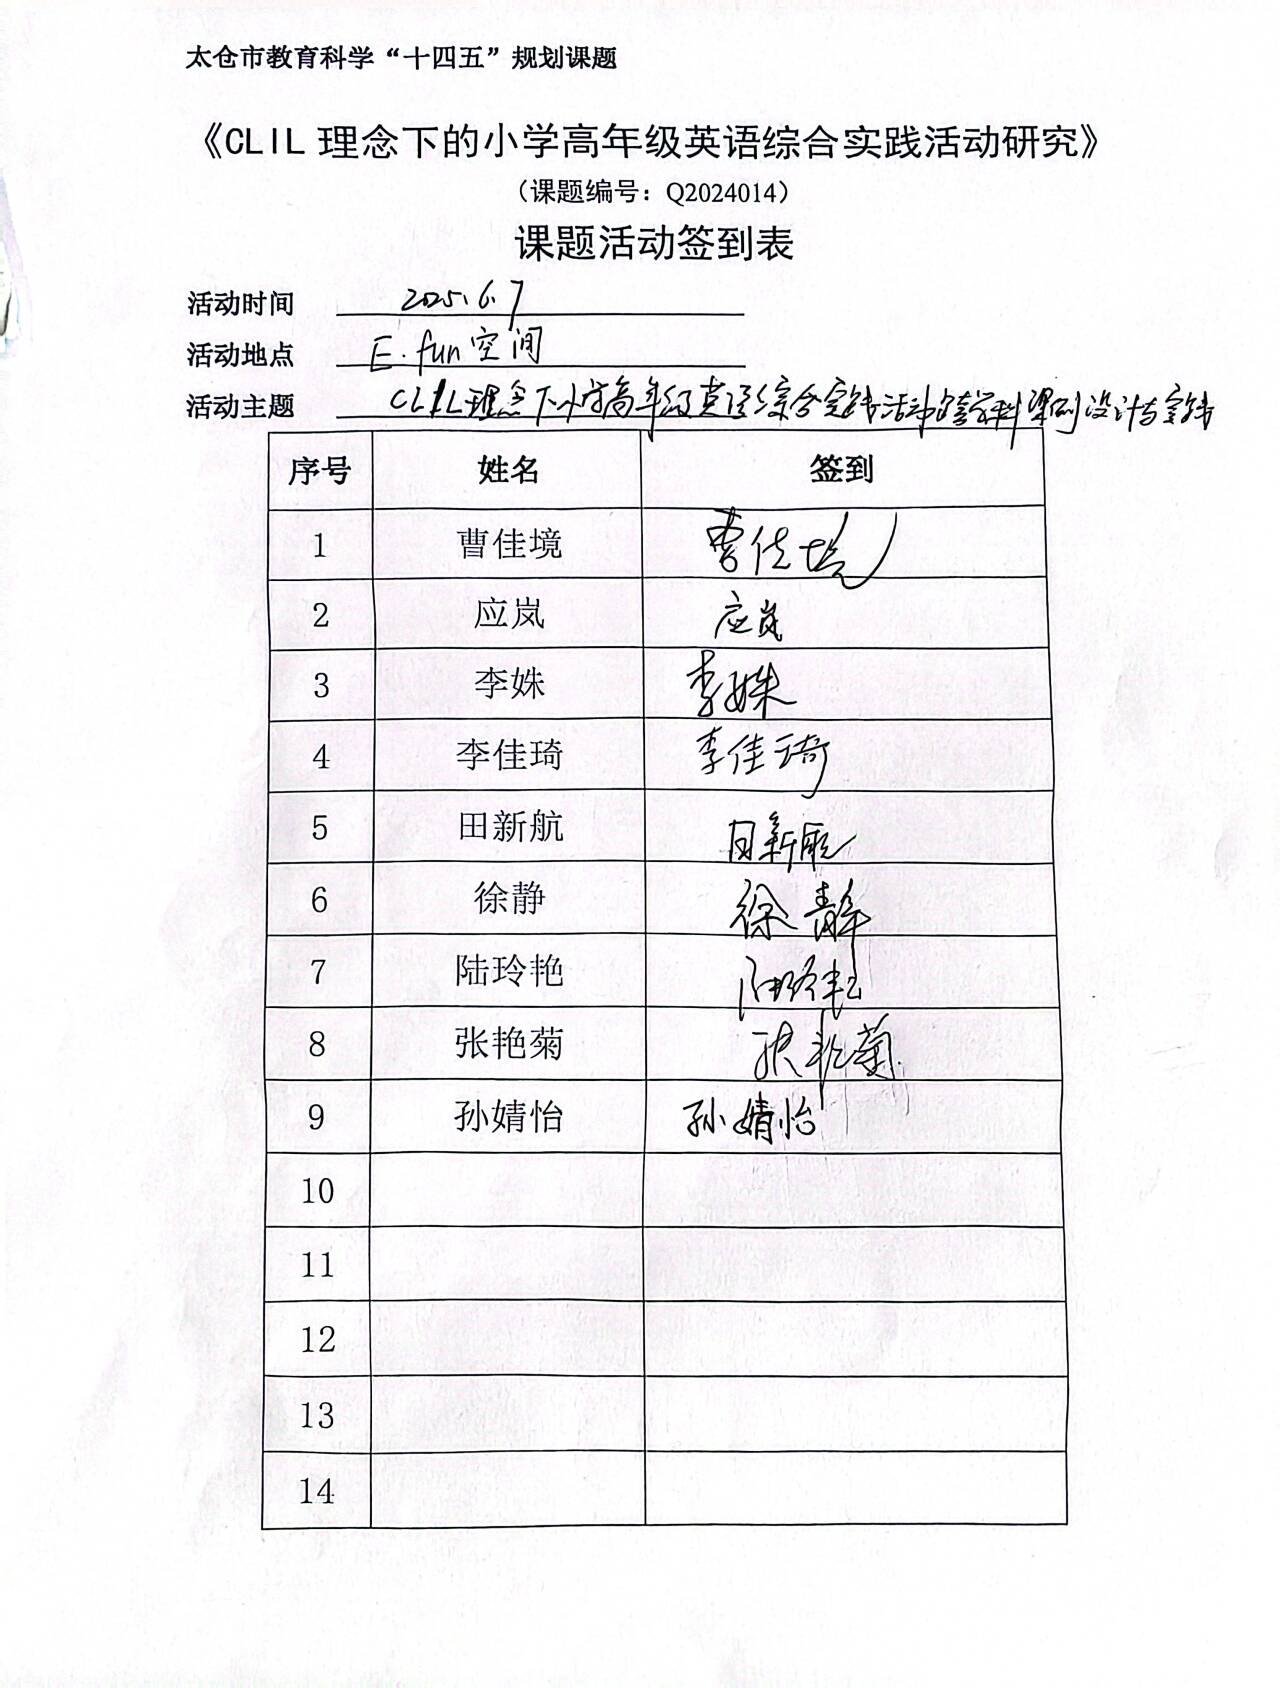 太仓市教育科学“十四五”规划课题
《CLIL 理念下的小学高年级英语综合实践活动研究》
（课题编号：Q2024014）
课题活动签到表
活动时间 2025.6.7
活动地点 E·fun空间
活动主题 CLIL理念下小学高年级英语综合实践活动跨学科课例设计与实践
序号 姓名 签到
1 曹佳境 曹佳境
2 应岚 应岚
3 李姝 李姝
4 李佳琦 李佳琦
5 田新航 田新航
6 徐静 徐静
7 陆玲艳 陆玲艳
8 张艳菊 张艳菊
9 孙婧怡 孙婧怡
10
11
12
13
14